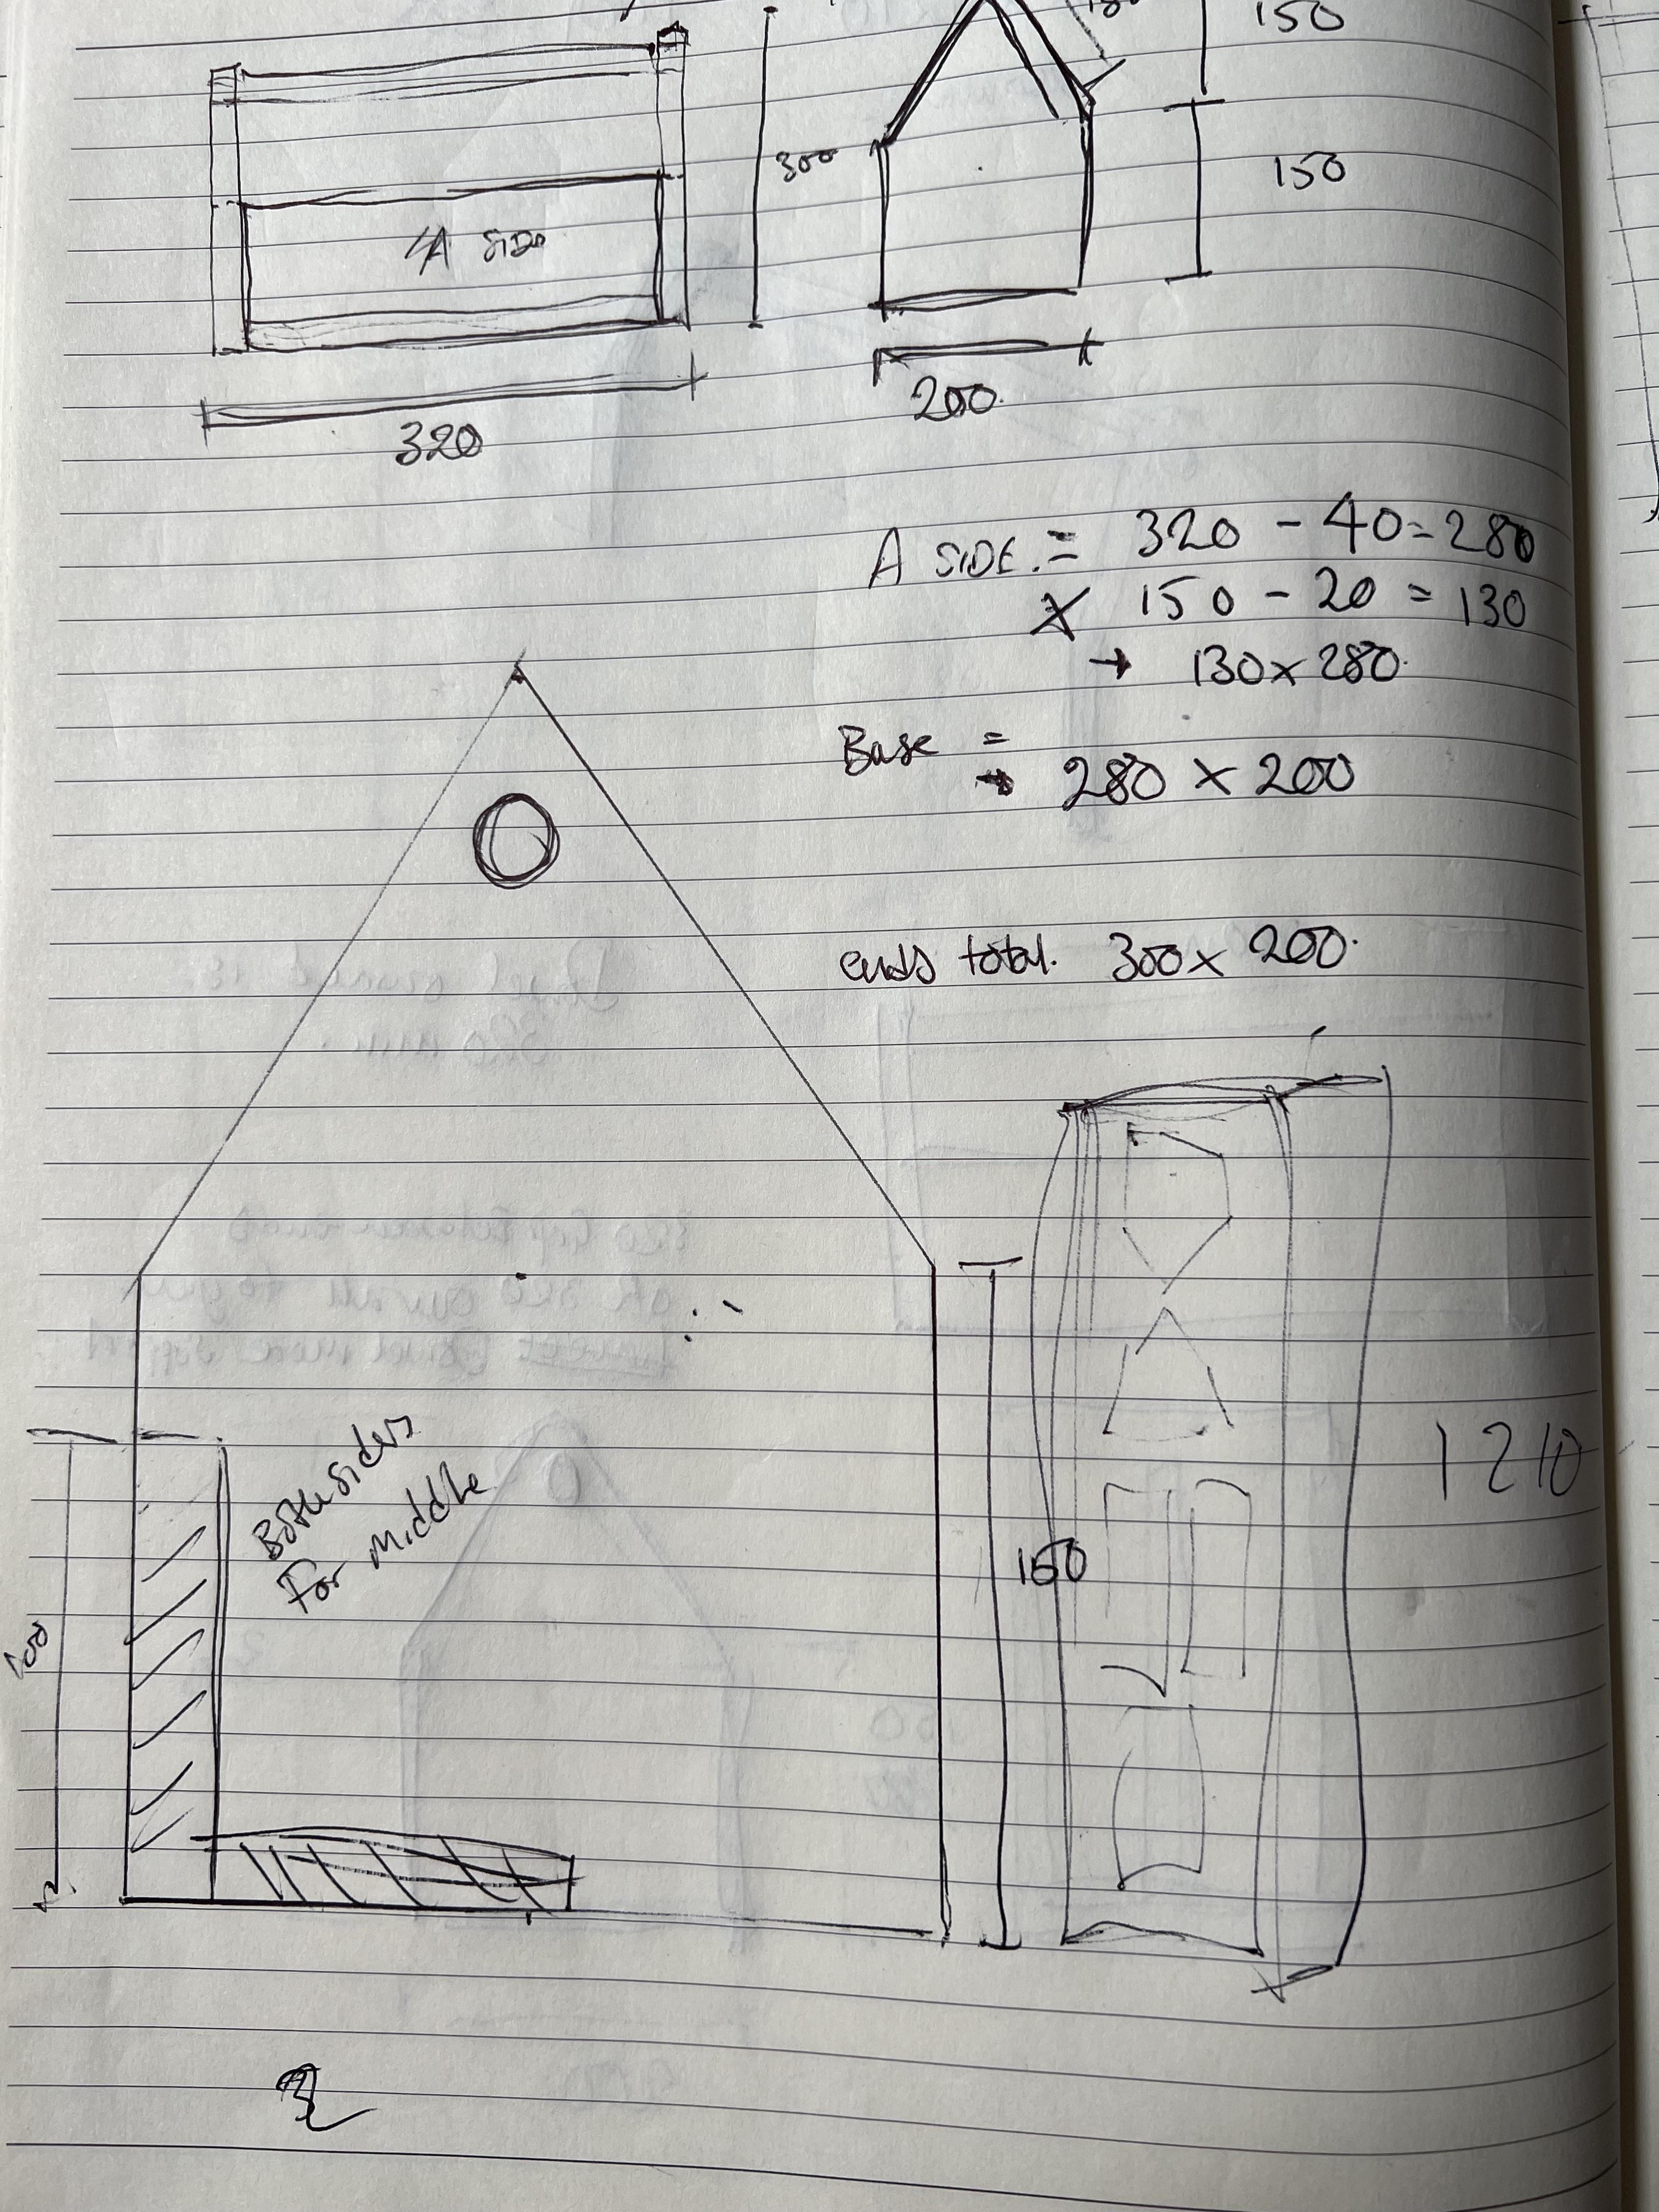 150
300
150
A SIDE
320
200.
A SIDE. = 320 - 40 = 280
X 150 - 20 = 130
→ 130 x 280.
Base =
→ 280 x 200
ends total. 300 x 200.
Both sides
For middle
100
150
1210